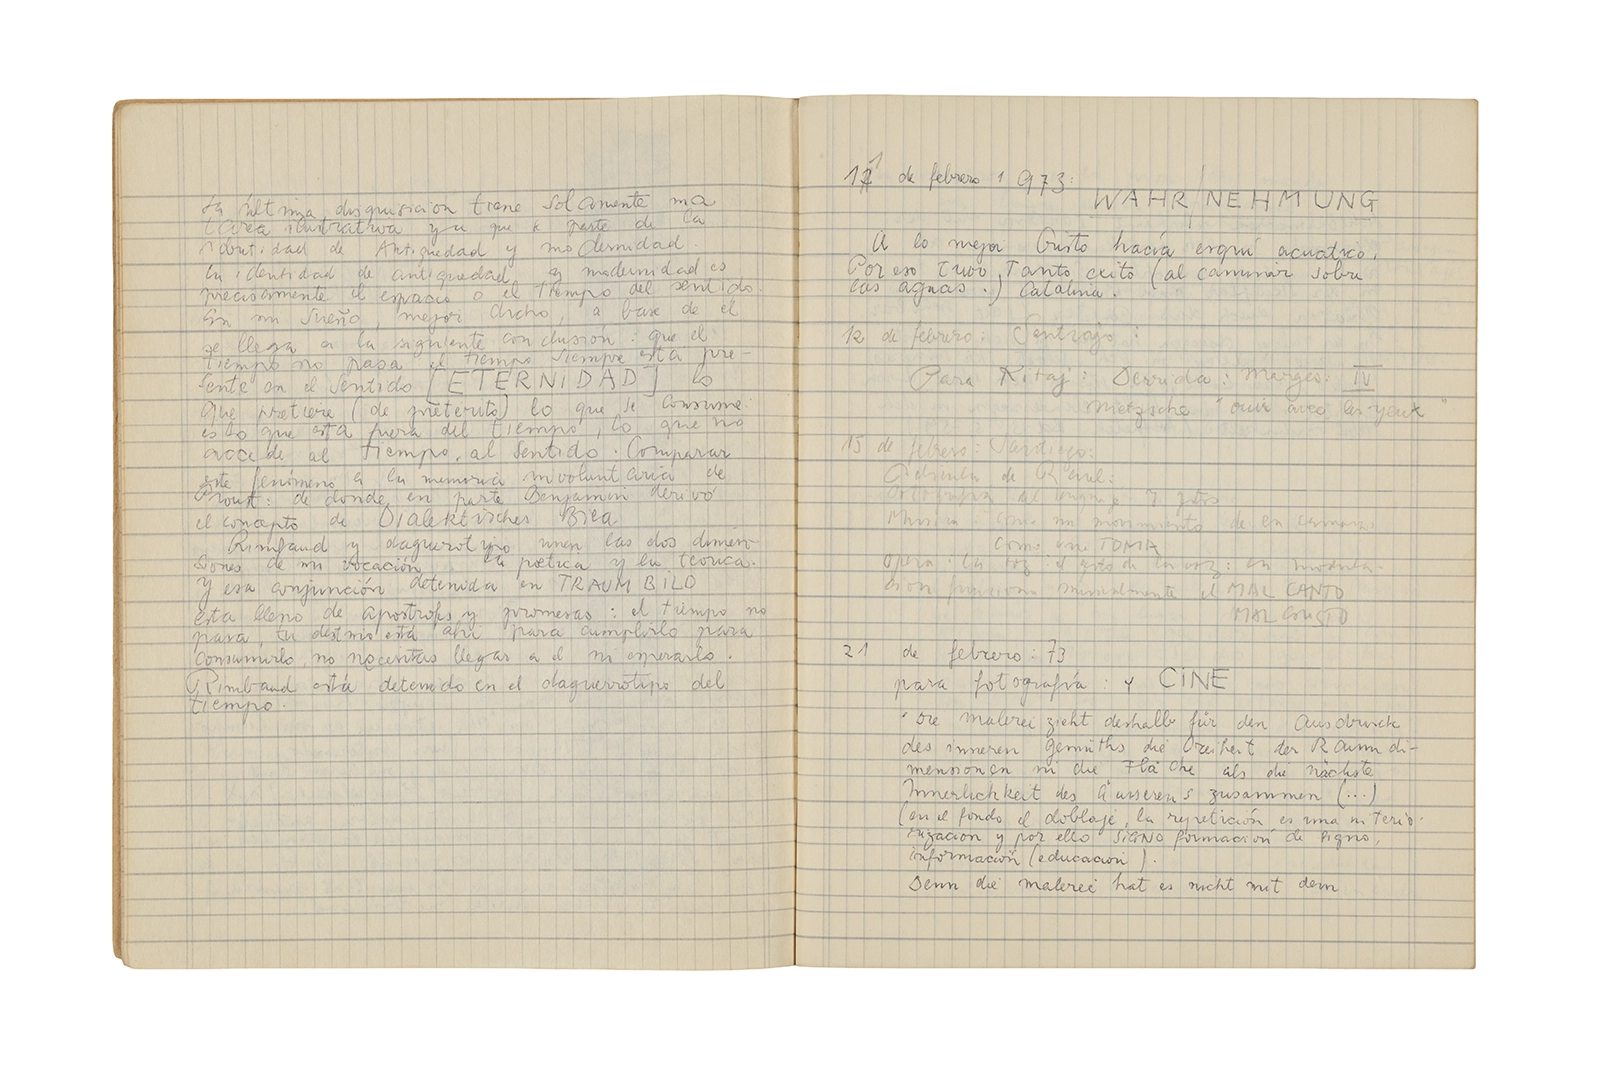 La última disquisición tiene solamente una
tarea ilustrativa ya que se parte de la
identidad de Antigüedad y modernidad.
La identidad de antigüedad y modernidad es
precisamente el espacio o el tiempo del sentido.
En mi sueño, mejor dicho, a base de él
se llega a la siguiente conclusión: que el
tiempo no pasa el tiempo siempre está pre-
sente en el sentido [ETERNIDAD] lo
que pretiere (de pretérito) lo que se consume:
es lo que está fuera del tiempo, lo que no
accede al tiempo, al sentido. Comparar
este fenómeno a la memoria involuntaria de
Proust: de donde en parte Benjamin derivó
el concepto de Dialektisches Bild
Rimbaud y daguerrotipo unen las dos dimen-
siones de mi vocación la poética y la teórica.
Y esa conjunción detenida en TRAUM BILD
está lleno de apostrofs y promesas: el tiempo no
pasa, tu destino está ahí para cumplirlo para
consumirlo, no necesitas llegar a él ni esperarlo.
Rimbaud está detenido en el daguerrotipo del
tiempo.
11 de febrero 1973:
WAHR/NEHMUNG
A lo mejor Cristo hacía esquí acuático.
Por eso tuvo tanto éxito (al caminar sobre
las aguas.) Catalina.
12 de febrero: Santiago:
Para Kitaj: Derrida: Marges: IV
Nietzsche "ouir avec les yeux"
15 de febrero: Santiago:
Película de
y gestos
Música como un movimiento de
como una TOMA
opera: la voz: el gesto de la voz: en modula-
ción funciona el MAL CANTO
MAL GUSTO
21 de febrero: 73
para fotografía: y CINE
"Die Malerei zieht deshalb für den Ausdruck
des inneren Gemüths die Dreiheit der Raum di-
mensionen in die Fläche als die nächste
Innerlichkeit des Äusseren s zusammen (...)
(en el fondo el doblaje, la repetición es una interio-
rización y por ello SIGNO formación de signo,
información (educación).
Denn die Malerei hat es nicht mit dem